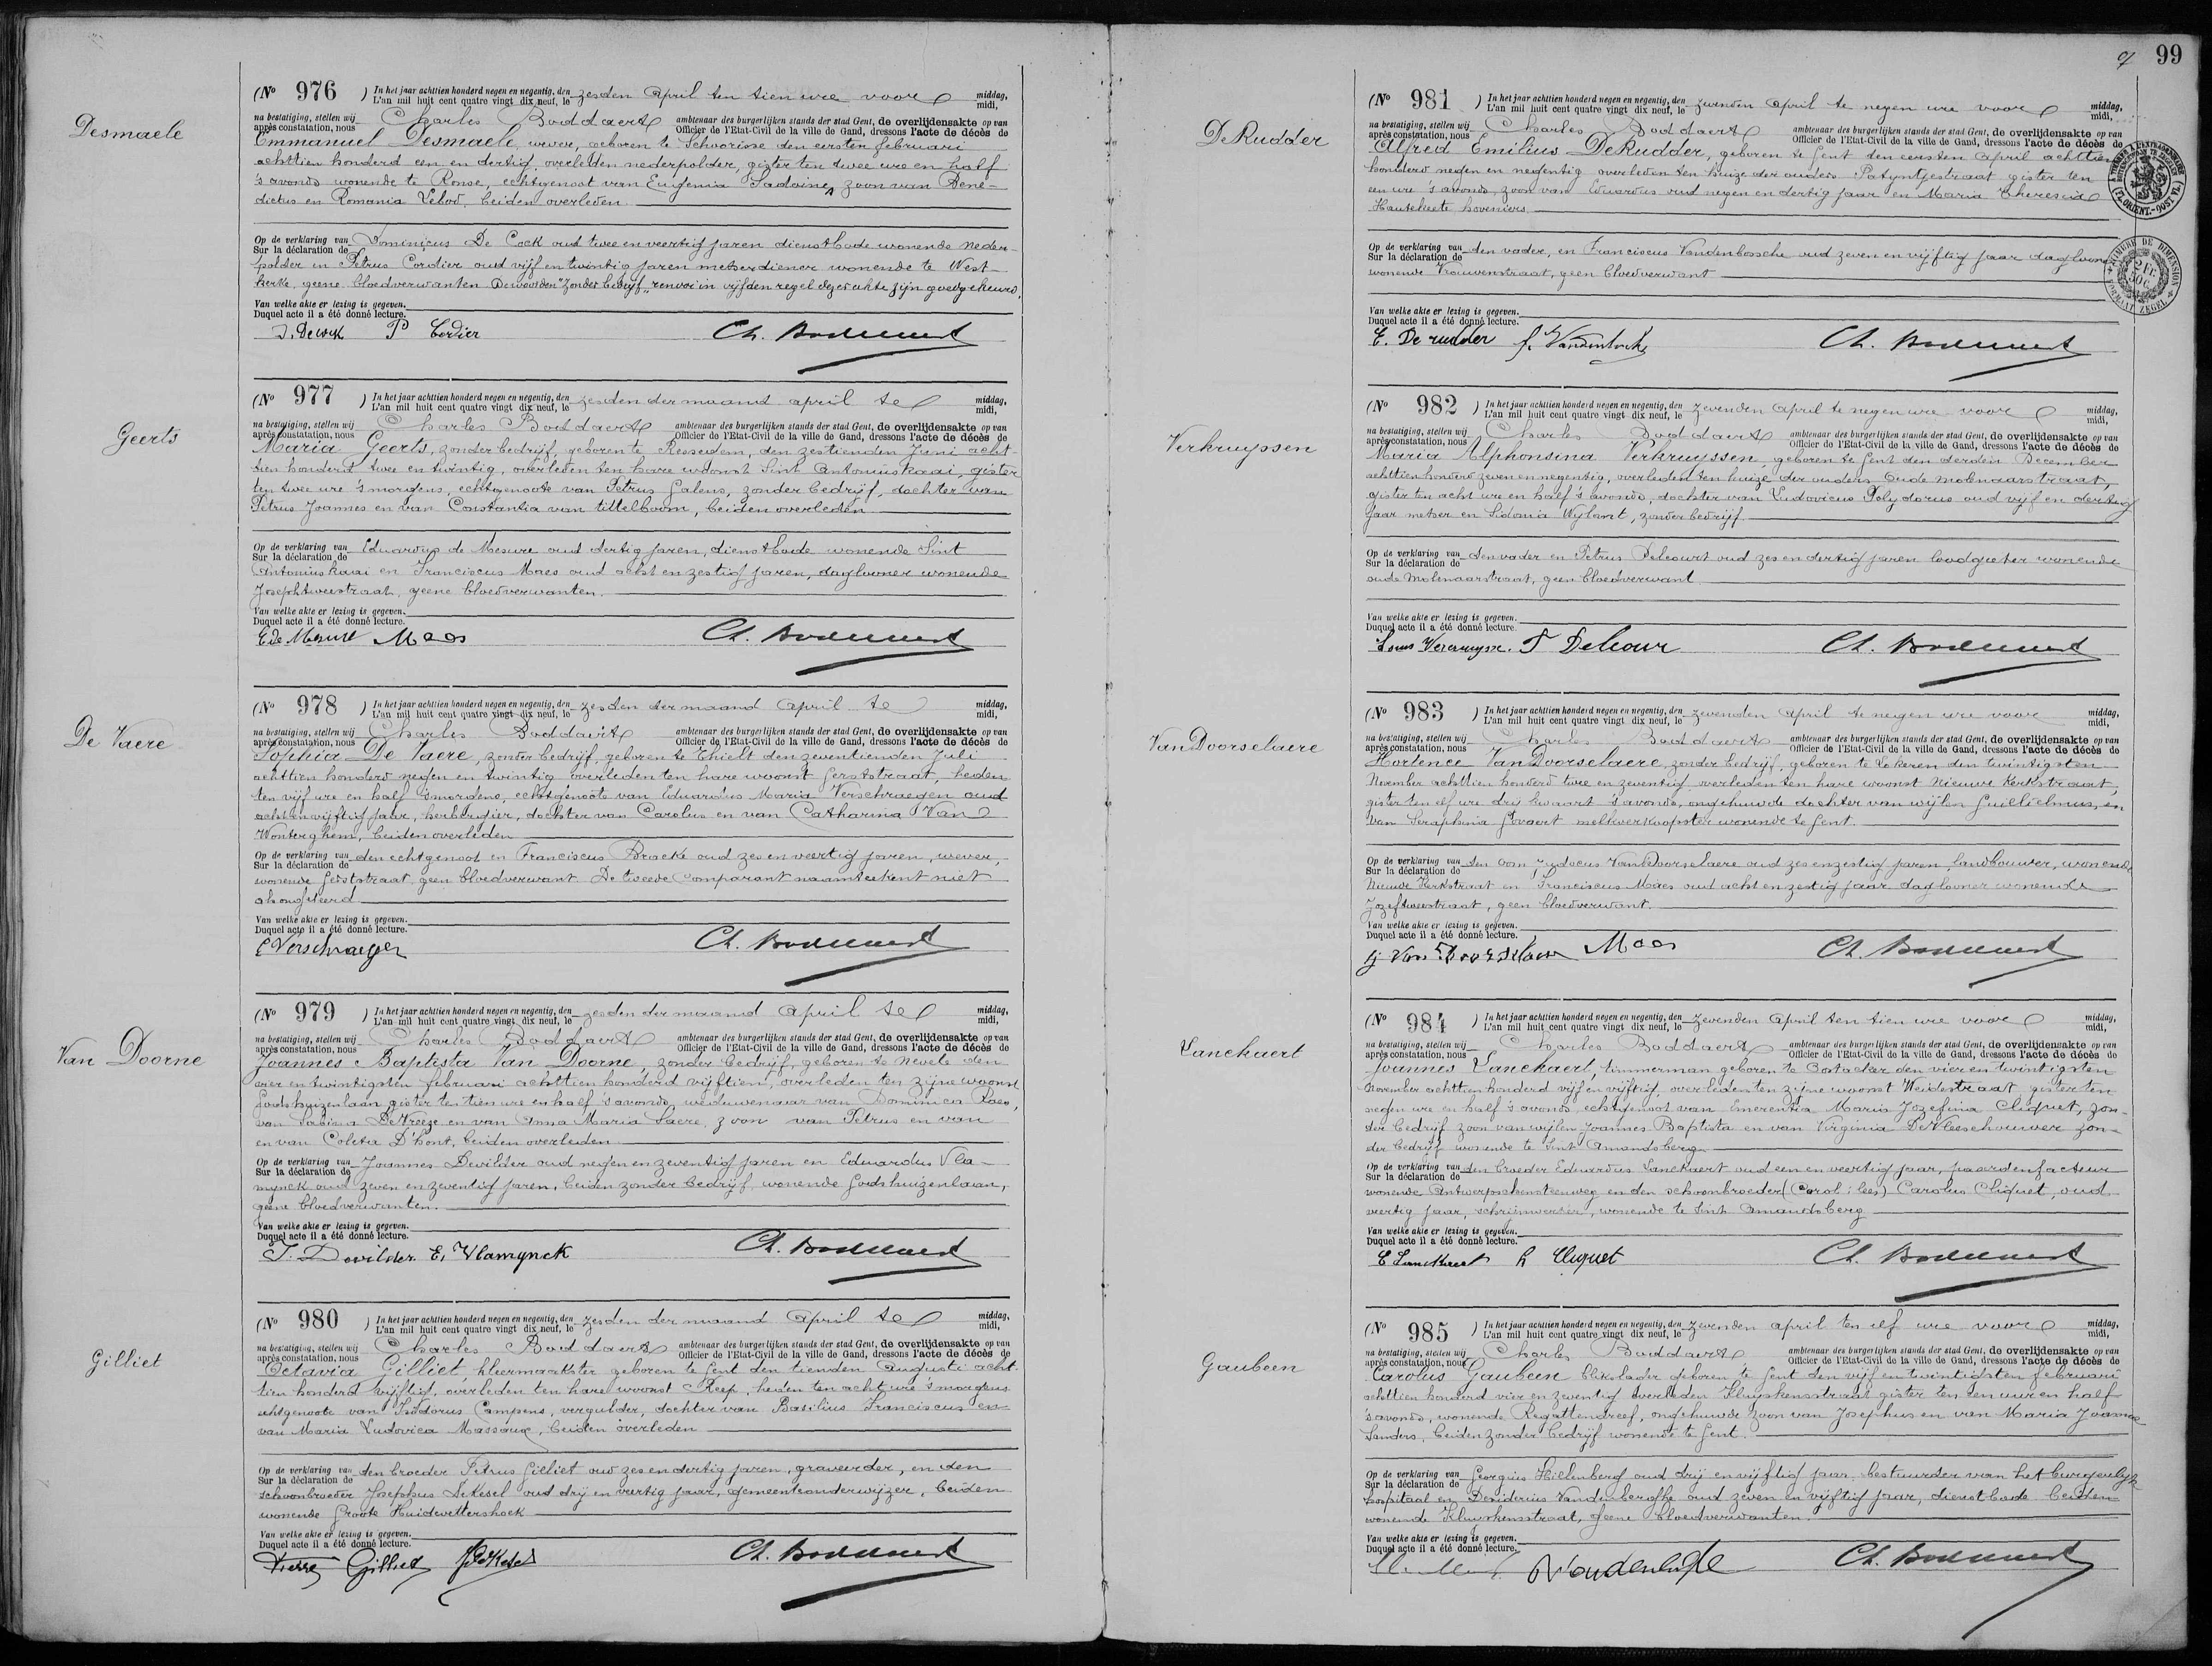 Desmaele
(No 976 ) In het jaar achttien honderd negen en negentig, den zesden April ten tien ure voor middag,
L'an mil huit cent quatre vingt dix neuf, le midi,
na bestatiging, stellen wij Charles Boddaert ambtenaar des burgerlijken stands der stad Gent, de overlijdensakte op van
après constatation, nous Officier de l'Etat-Civil de la ville de Gand, dressons l'acte de décès de
Emmanuel Desmaele, wever, geboren te Schorisse den eersten februari
achttien honderd een en dertig, overleden nederpolder, gister ten twee ure en half
's avonds wonende te Ronse, echtgenoot van Eugenia zoon van Bene-
dictus en Romania beiden overleden
Op de verklaring van Dominicus De Cock oud twee en veertig jaren dienstbode wonende neder-
Sur la déclaration de
polder en Petrus Cordier oud vijf en twintig jaren metserdiener wonende te West-
kerke, geene bloedverwanten De woorden "zonder bedrijf" renvoi in vijfden regel dezer akte zijn goedgekeurd.
Van welke akte er lezing is gegeven.
Duquel acte il a été donné lecture.
D. De Cock P Cordier Ch. Boddaert
Geerts
(No 977 ) In het jaar achttien honderd negen en negentig, den zesden der maand april te middag,
L'an mil huit cent quatre vingt dix neuf, le midi,
na bestatiging, stellen wij Charles Boddaert ambtenaar des burgerlijken stands der stad Gent, de overlijdensakte op van
après constatation, nous Officier de l'Etat-Civil de la ville de Gand, dressons l'acte de décès de
Maria Geerts, zonder bedrijf, geboren te Resseldem, den zestienden Juni acht-
tien honderd twee en twintig, overleden ten hare woonst Sint Antoniuskaai, gister
ten twee ure 's morgens, echtgenoote van Petrus Galens, zonder bedrijf, dochter van
Petrus Joannes en van Constantia van tittelboom, beiden overleden
Op de verklaring van Eduardus de Mesure oud dertig jaren, dienstbode wonende Sint
Sur la déclaration de
Antoniuskaai en Franciscus Maes oud acht en zestig jaren, daglooner wonende
Josephtweestraat, geene bloedverwanten.
Van welke akte er lezing is gegeven.
Duquel acte il a été donné lecture.
E de Mesure Maes Ch. Boddaert
De Vaere
(No 978 ) In het jaar achttien honderd negen en negentig, den zesden der maand April te middag,
L'an mil huit cent quatre vingt dix neuf, le midi,
na bestatiging, stellen wij Charles Boddaert ambtenaar des burgerlijken stands der stad Gent, de overlijdensakte op van
après constatation, nous Officier de l'Etat-Civil de la ville de Gand, dressons l'acte de décès de
Sophia De Vaere, zonder bedrijf, geboren te Thielt den zeventienden Juli
achttien honderd negen en twintig overleden ten hare woonst Gerststraat, heden
ten vijf ure en half 's morgens, echtgenoote van Eduardus Maria Verschraegen oud
acht en vijftig jaar, herbergier, dochter van Carolus en van Catharina Van
Wonterghem, beiden overleden
Op de verklaring van den echtgenoot en Franciscus Bracke oud zes en veertig jaren, wever
Sur la déclaration de
wonende Gerststraat geen bloedverwant De tweede comparant naamteekent niet
als ongeleerd
Van welke akte er lezing is gegeven.
Duquel acte il a été donné lecture.
E Verschraegen Ch. Boddaert
Van Doorne
(No 979 ) In het jaar achttien honderd negen en negentig, den zesden der maand April te middag,
L'an mil huit cent quatre vingt dix neuf, le midi,
na bestatiging, stellen wij Charles Boddaert ambtenaar des burgerlijken stands der stad Gent, de overlijdensakte op van
après constatation, nous Officier de l'Etat-Civil de la ville de Gand, dressons l'acte de décès de
Joannes Baptista Van Doorne, zonder bedrijf, geboren te Nevele den
vier en twintigsten februari achttien honderd vijftien, overleden ten zijne woonst
Godshuizenlaan gister ten tien ure en half 's avonds, weduwenaar van Dominica Raes,
van Sabina De Vreeze en van Anna Maria Saere, zoon van Petrus en van
en van Coleta D'hont, beiden overleden
Op de verklaring van Joannes Dewilder oud negen en zeventig jaren en Eduardus Vla-
Sur la déclaration de
mynck oud zeven en zeventig jaren, beiden zonder bedrijf wonende Godshuizenlaan,
geene bloedverwanten.
Van welke akte er lezing is gegeven.
Duquel acte il a été donné lecture.
J. Dewilder. E. Vlamynck Ch. Boddaert
Gilliet
(No 980 ) In het jaar achttien honderd negen en negentig, den zesden der maand April te middag,
L'an mil huit cent quatre vingt dix neuf, le midi,
na bestatiging, stellen wij Charles Boddaert ambtenaar des burgerlijken stands der stad Gent, de overlijdensakte op van
après constatation, nous Officier de l'Etat-Civil de la ville de Gand, dressons l'acte de décès de
Octavia Gilliet, kleermaakster geboren te Gent den tienden Augusti acht-
tien honderd vijftig, overleden ten hare woonst Reep, heden ten acht ure 's morgens
echtgenoote van Isidorus Campens, vergulder, dochter van Basilius Franciscus en
van Maria Ludovica Massaux, beiden overleden
Op de verklaring van den broeder Petrus Gilliet oud zes en dertig jaren, graveerder, en den
Sur la déclaration de
schoonbroeder Josephus DeKesel oud drij en veertig jaar, gemeenteonderwijzer, beiden
wonende Groote Huidevettershoek
Van welke akte er lezing is gegeven.
Duquel acte il a été donné lecture.
Pierre Gilliet J DeKesel Ch. Boddaert
99
De Rudder
(No 981 ) In het jaar achttien honderd negen en negentig, den zevenden April te negen ure voor middag,
L'an mil huit cent quatre vingt dix neuf, le midi,
na bestatiging, stellen wij Charles Boddaert ambtenaar des burgerlijken stands der stad Gent, de overlijdensakte op van
après constatation, nous Officier de l'Etat-Civil de la ville de Gand, dressons l'acte de décès de
Alfred Emilius DeRudder, geboren te Gent den eersten April achttien
honderd negen en negentig overleden ten huize der ouders Patijntjestraat gister ten
een ure 's avonds, zoon van Eduardus oud negen en dertig jaar en Maria Theresia
Hautekeete hoveniers
Op de verklaring van den vader, en Franciscus Vandenbossche oud zeven en vijftig jaar daglooner
Sur la déclaration de
wonende Vrouwenstraat, geen bloedverwant
Van welke akte er lezing is gegeven.
Duquel acte il a été donné lecture.
E. De rudder f. Vandenbossche Ch. Boddaert
Verkruyssen
(No 982 ) In het jaar achttien honderd negen en negentig, den zevenden April te negen ure voor middag,
L'an mil huit cent quatre vingt dix neuf, le midi,
na bestatiging, stellen wij Charles Boddaert ambtenaar des burgerlijken stands der stad Gent, de overlijdensakte op van
après constatation, nous Officier de l'Etat-Civil de la ville de Gand, dressons l'acte de décès de
Maria Alphonsina Verkruyssen, geboren te Gent den derden December
achttien honderd zeven en negentig, overleden ten huize der ouders Oude molenaarstraat,
gister ten acht ure en half 's avonds, dochter van Ludovicus Polydorus oud vijf en dertig
jaar metser en Sidonia Wylant, zonder bedrijf
Op de verklaring van den vader en Petrus Delcourt oud zes en dertig jaren loodgieter wonende
Sur la déclaration de
oude Molenaarstraat, geen bloedverwant
Van welke akte er lezing is gegeven.
Duquel acte il a été donné lecture.
Louis Vercruysse. P Delcour Ch. Boddaert
Van Doorselaere
(No 983 ) In het jaar achttien honderd negen en negentig, den zevenden April te negen ure voor middag,
L'an mil huit cent quatre vingt dix neuf, le midi,
na bestatiging, stellen wij Charles Boddaert ambtenaar des burgerlijken stands der stad Gent, de overlijdensakte op van
après constatation, nous Officier de l'Etat-Civil de la ville de Gand, dressons l'acte de décès de
Hortence Van Doorselaere, zonder bedrijf, geboren te Lokeren den twintigsten
November achttien honderd twee en zeventig overleden ten hare woonst Nieuwe Kerkstraat,
gister ten elf ure drij kwaart 's avonds, ongehuwde dochter van wijlen Guilielmus, en
van Seraphina Govaert melkverkoopster wonende te Gent.
Op de verklaring van den oom Judocus VanDoorselaere oud zes en zestig jaren, landbouwer, wonende
Sur la déclaration de
Nieuwe Kerkstraat en Franciscus Maes oud acht en zestig jaar daglooner wonende
Jozeftweestraat, geen bloedverwant.
Van welke akte er lezing is gegeven.
Duquel acte il a été donné lecture.
J Van Doorselaere Maes Ch. Boddaert
Lanckaert
(No 984 ) In het jaar achttien honderd negen en negentig, den zevenden April ten tien ure voor middag,
L'an mil huit cent quatre vingt dix neuf, le midi,
na bestatiging, stellen wij Charles Boddaert ambtenaar des burgerlijken stands der stad Gent, de overlijdensakte op van
après constatation, nous Officier de l'Etat-Civil de la ville de Gand, dressons l'acte de décès de
Joannes Lanckaert, timmerman geboren te Oostacker den vier en twintigsten
November achttien honderd vijf en vijftig, overleden ten zijne woonst Weidestraat, gister ten
negen ure en half 's avonds, echtgenoot van Emerentia Maria Jozefina Cliquet, zon-
der bedrijf zoon van wijlen Joannes Baptista en van Virginia DeVleeschouwer zon-
der bedrijf wonende te Sint Amandsberg
Op de verklaring van den broeder Eduardus Lanckaert oud een en veertig jaar, paardenfacteur
Sur la déclaration de
wonende Antwerpschensteenweg en den schoonbroeder (Carol: lees) Carolus Cliquet, oud
veertig jaar, schrijnwerker, wonende te Sint Amandsberg
Van welke akte er lezing is gegeven.
Duquel acte il a été donné lecture.
E Lanckaert Cliquet Ch. Boddaert
Gaubeen
(No 985 ) In het jaar achttien honderd negen en negentig, den zevenden april ten elf ure voor middag,
L'an mil huit cent quatre vingt dix neuf, le midi,
na bestatiging, stellen wij Charles Boddaert ambtenaar des burgerlijken stands der stad Gent, de overlijdensakte op van
après constatation, nous Officier de l'Etat-Civil de la ville de Gand, dressons l'acte de décès de
Carolus Gaubeen blikslager geboren te Gent den vijf en twintigsten februari
achttien honderd vier en zeventig overleden Kluyskensstraat gister ten een uur en half
's avonds, wonende Regattendreef, ongehuwde zoon van Josephus en van Maria Joanna
Sanders, beiden zonder bedrijf wonende te Gent.
Op de verklaring van Georgius Hillenberg oud drij en vijftig jaar bestuurder van het burgerlijk
Sur la déclaration de
hospitaal en Desiderius Vandenberghe oud zeven en vijftig jaar, dienstbode beiden
wonende Kluyskensstraat, geene bloedverwanten.
Van welke akte er lezing is gegeven.
Duquel acte il a été donné lecture.
Vandenberghe Ch. Boddaert